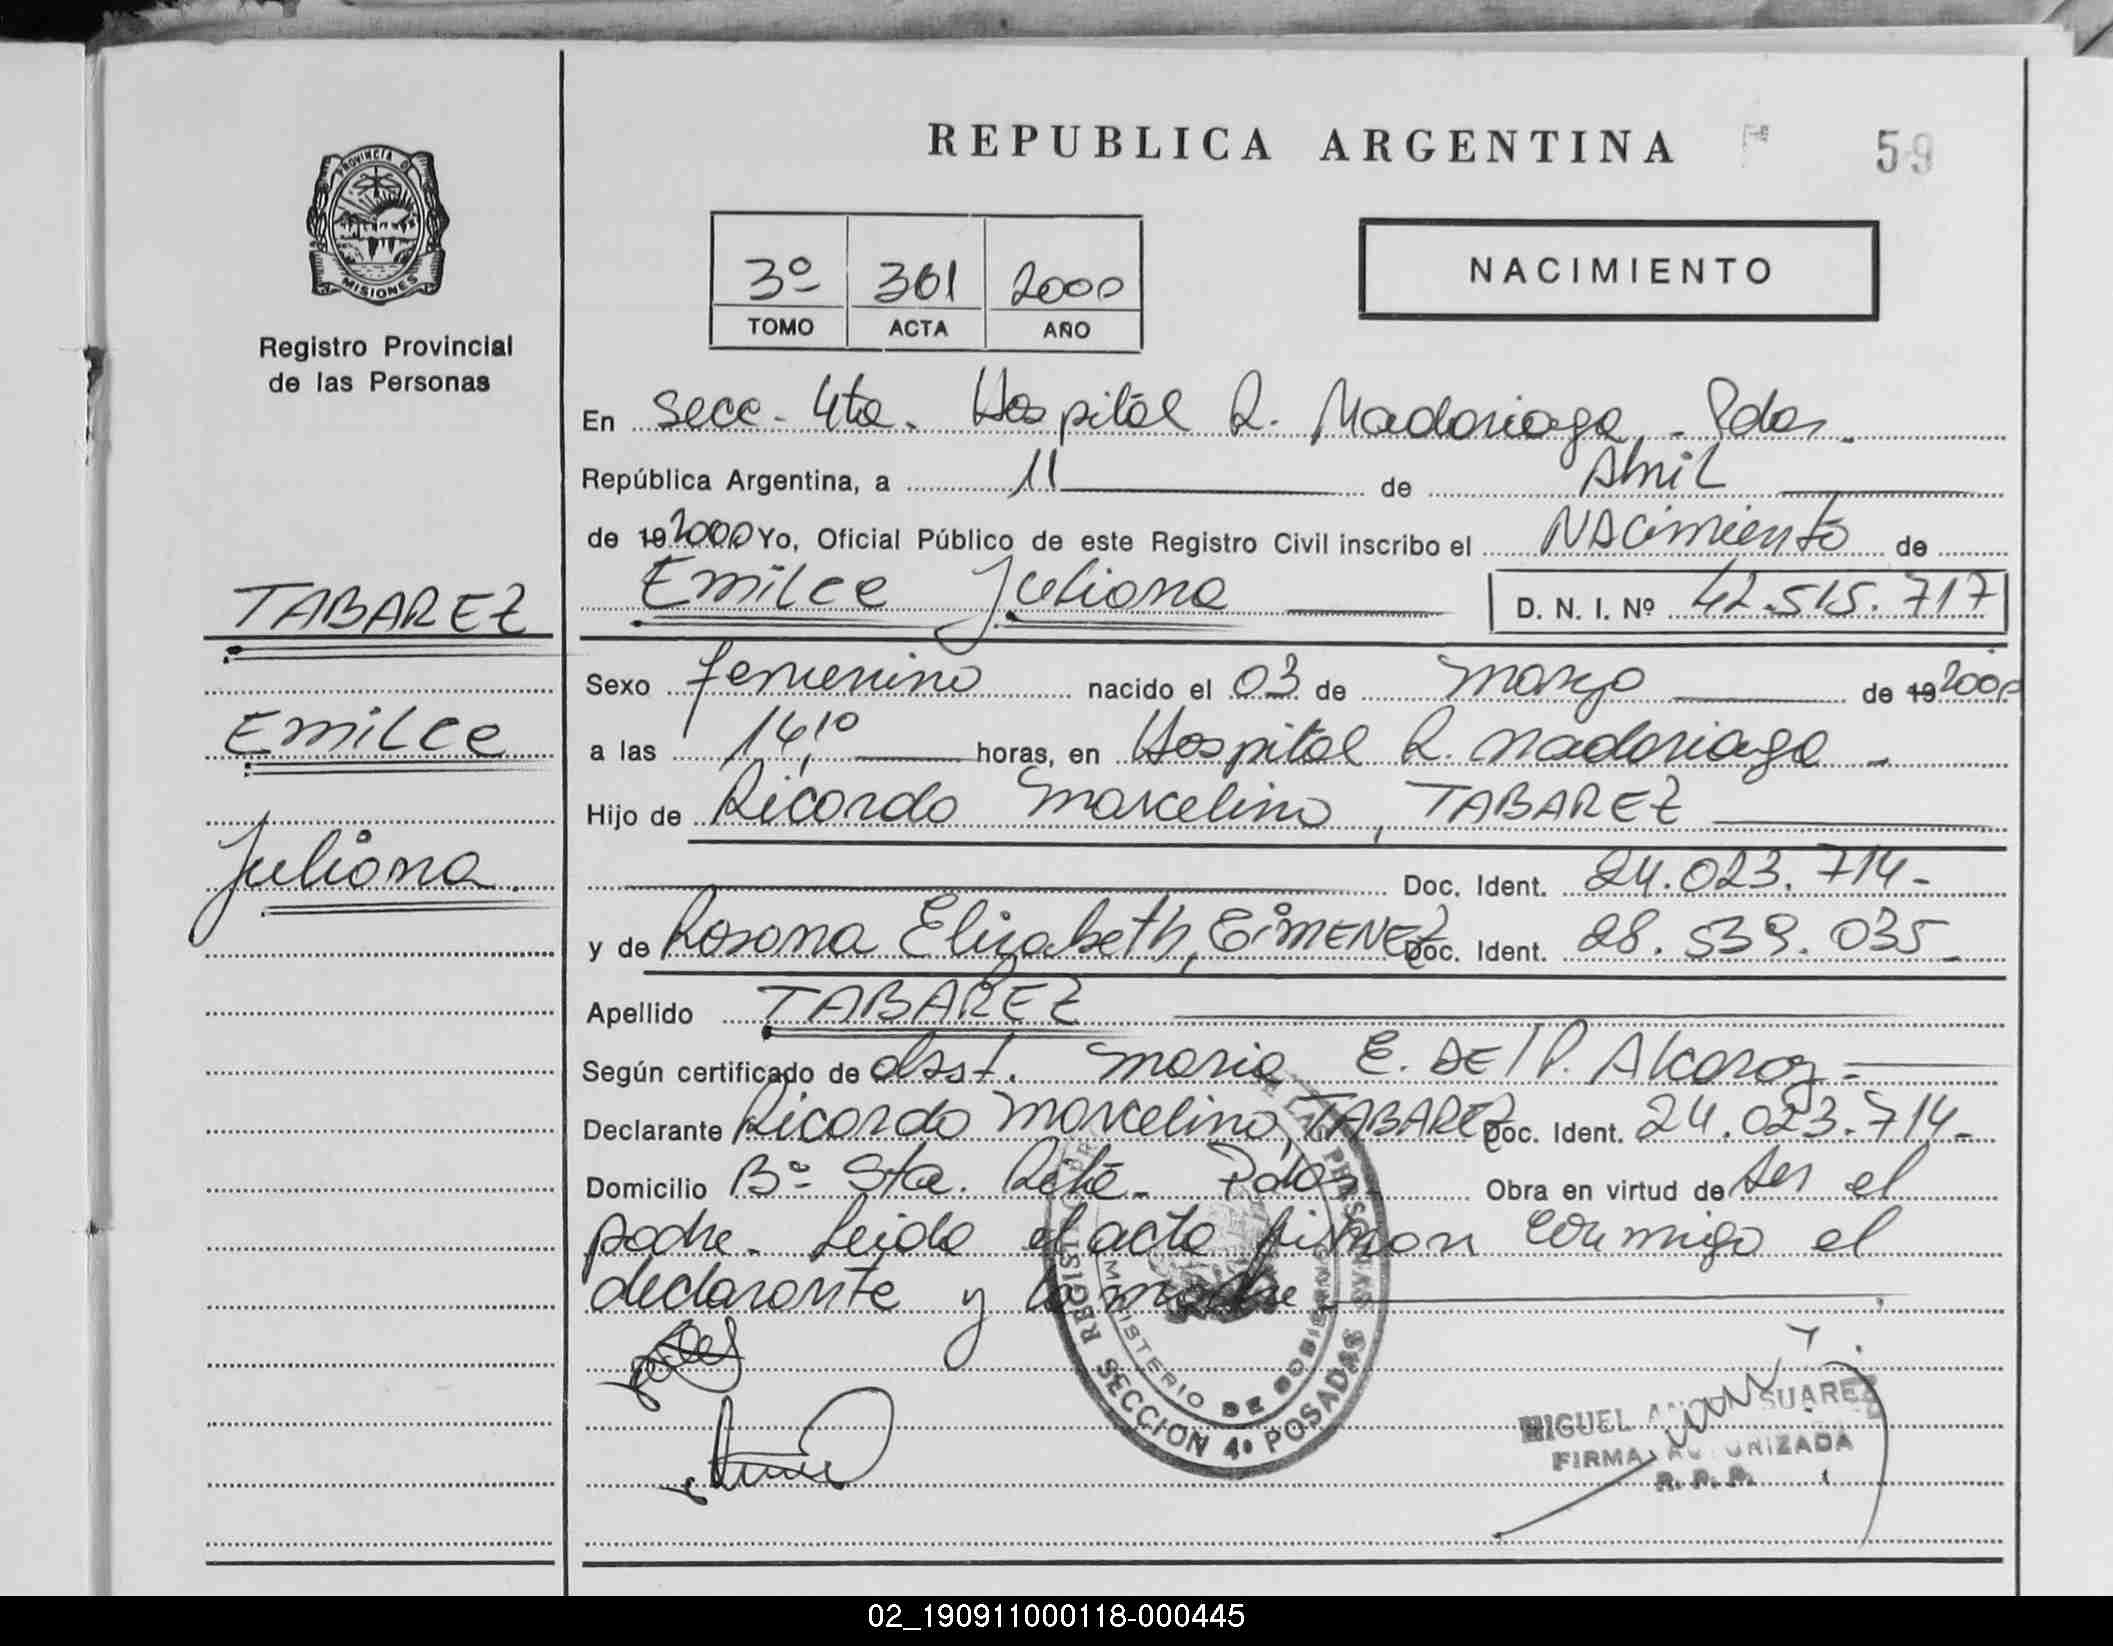 REPUBLICA ARGENTINA
Fº 59
PROVINCIA DE
MISIONES
Registro Provincial
de las Personas
3º 361 2000
TOMO ACTA AÑO
NACIMIENTO
En Secc. 4ta. Hospital R. Madariaga - Pdas.
República Argentina, a 11 de Abril
de 19 2000 Yo, Oficial Público de este Registro Civil inscribo el NAcimiento de
Emilce Juliana D. N. I. Nº 42.515.717
TABAREZ
Emilce
Juliana
Sexo femenino nacido el 03 de marzo de 19 2000
a las 14,10 horas, en Hospital R. Madariaga -
Hijo de Ricardo Marcelino, TABAREZ
Doc. Ident. 24.023.714-
y de Rosana Elizabeth, GiMENEZ Doc. Ident. 28.539.035-
Apellido TABAREZ
Según certificado de obst. Maria E. DEl P. Alcaraz -
Declarante Ricardo Marcelino, TABAREZ Doc. Ident. 24.023.714-
Domicilio Bº Sta. Rita - Pdas Obra en virtud de ser el
padre. Leida el acta firman conmigo el
declarante y la madre
MINISTERIO DE GOBIERNO
SECCION 4ª POSADAS
MIGUEL SUAREZ
FIRMA AUTORIZADA
R. P. P.
02_190911000118-000445